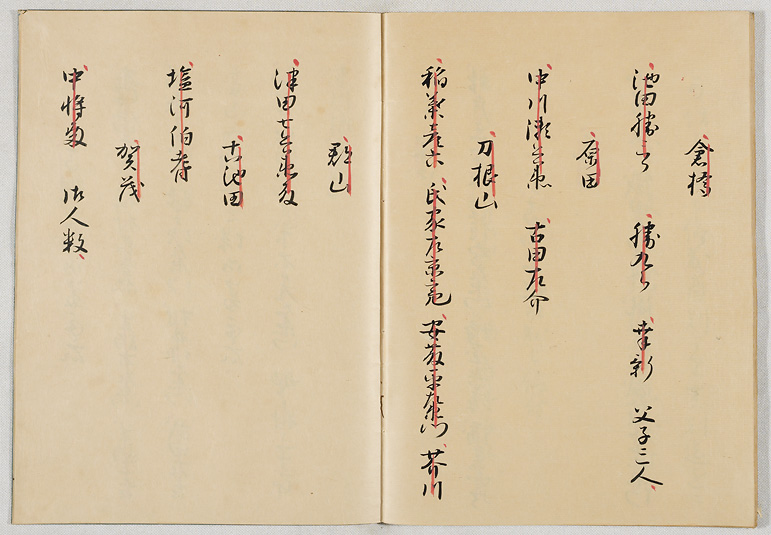 倉橋
池田勝三郎 勝九郎 幸新 父子三人
原田
中川瀬兵衛 古田左介
刀根山
稲葉彦六 氏家左京亮 安藤平左衛門 芥川
郡山
津田七兵衛
古池田
塩河伯耆
賀茂
中将殿 御人数